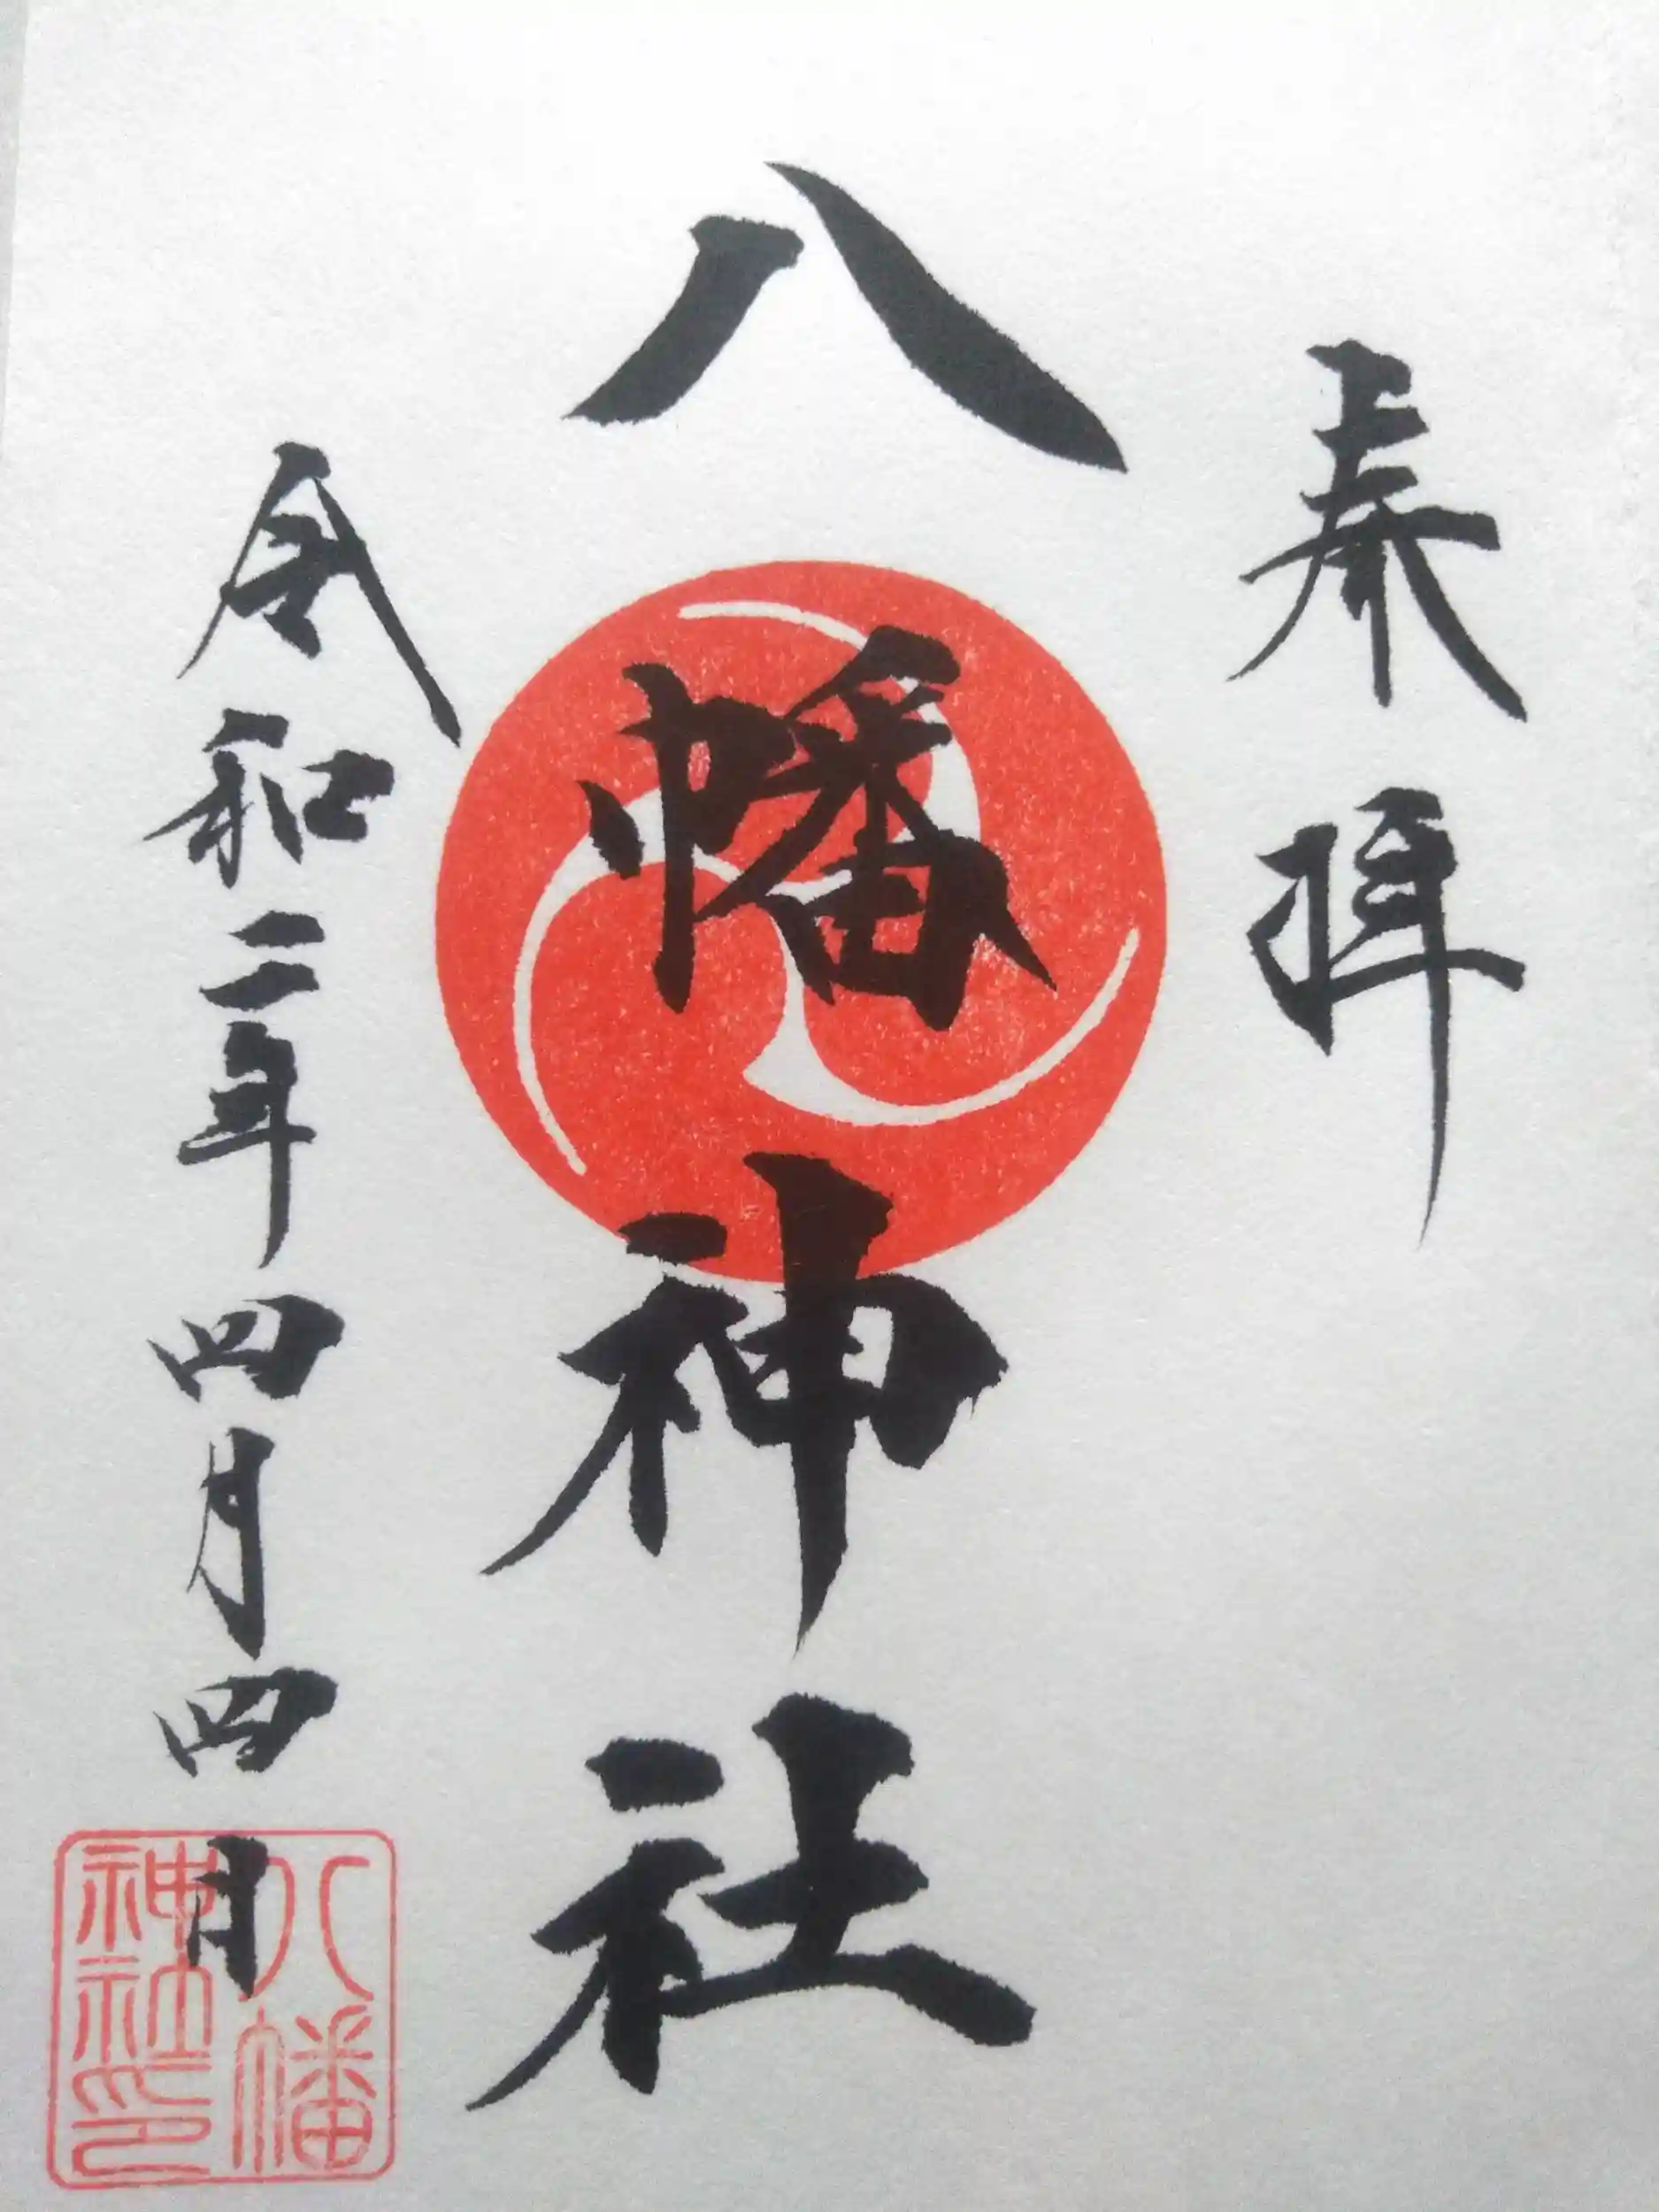 奉拝
八幡神社
令和二年四月四日
八幡
神社印